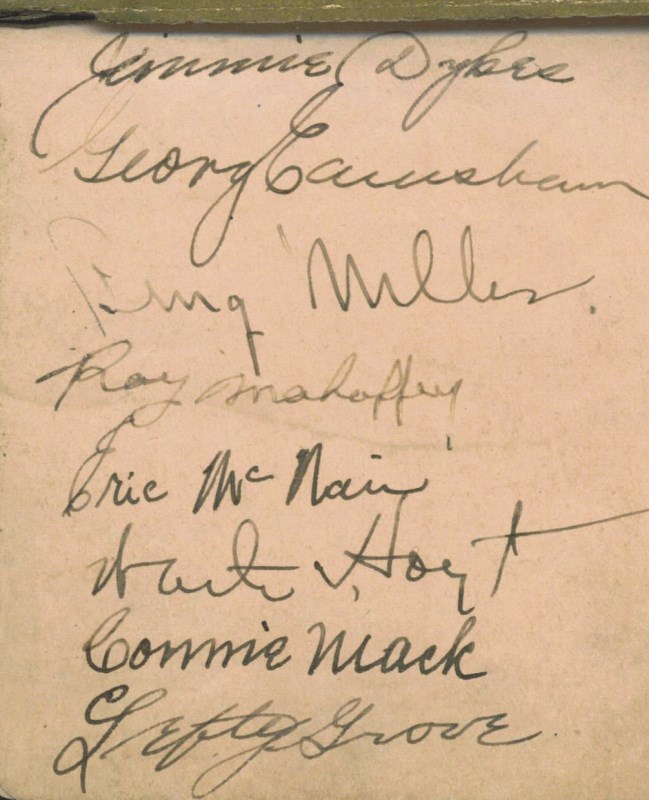 Jimmie Dykes
Georg Earnshaw
Bing Miller.
Roy Mahaffey
Eric McNair
Waite Hoyt
Connie Mack
Lefty Grove